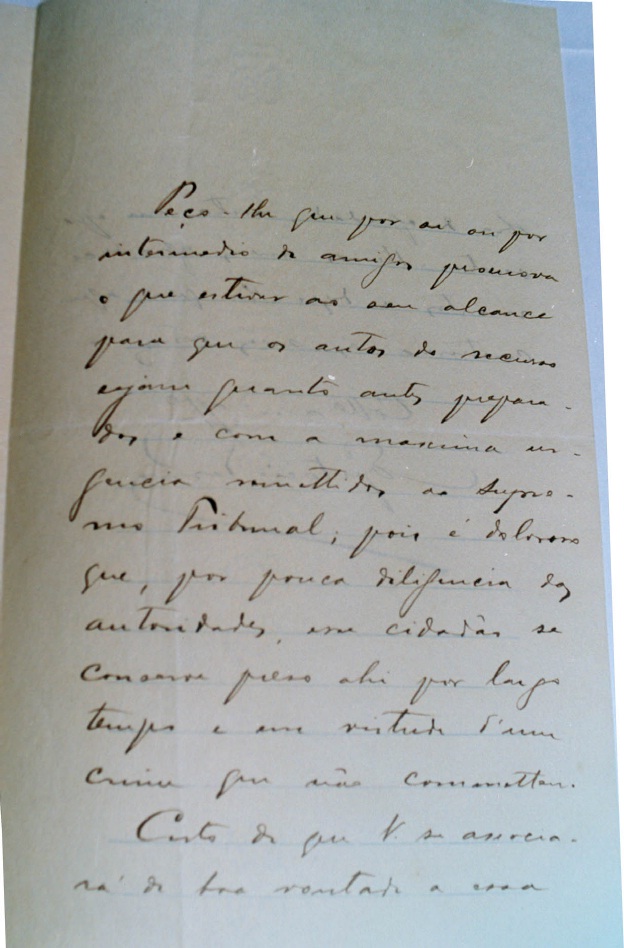 Peço-lhe que por si ou por
intermedio de amigos promova
o que estiver ao seu alcance
para que os autos do recurso
sejam quanto antes prepara-
dos e com a maxima ur-
gencia remettidos ao Supre-
mo Tribunal; pois é doloroso
que, por pouca diligencia das
autoridades, esse cidadão se
conserve preso ahi por largo
tempo e em virtude d'um
crime que não commetteu.
Certo de que V. se associa-
rá de boa vontade a essa